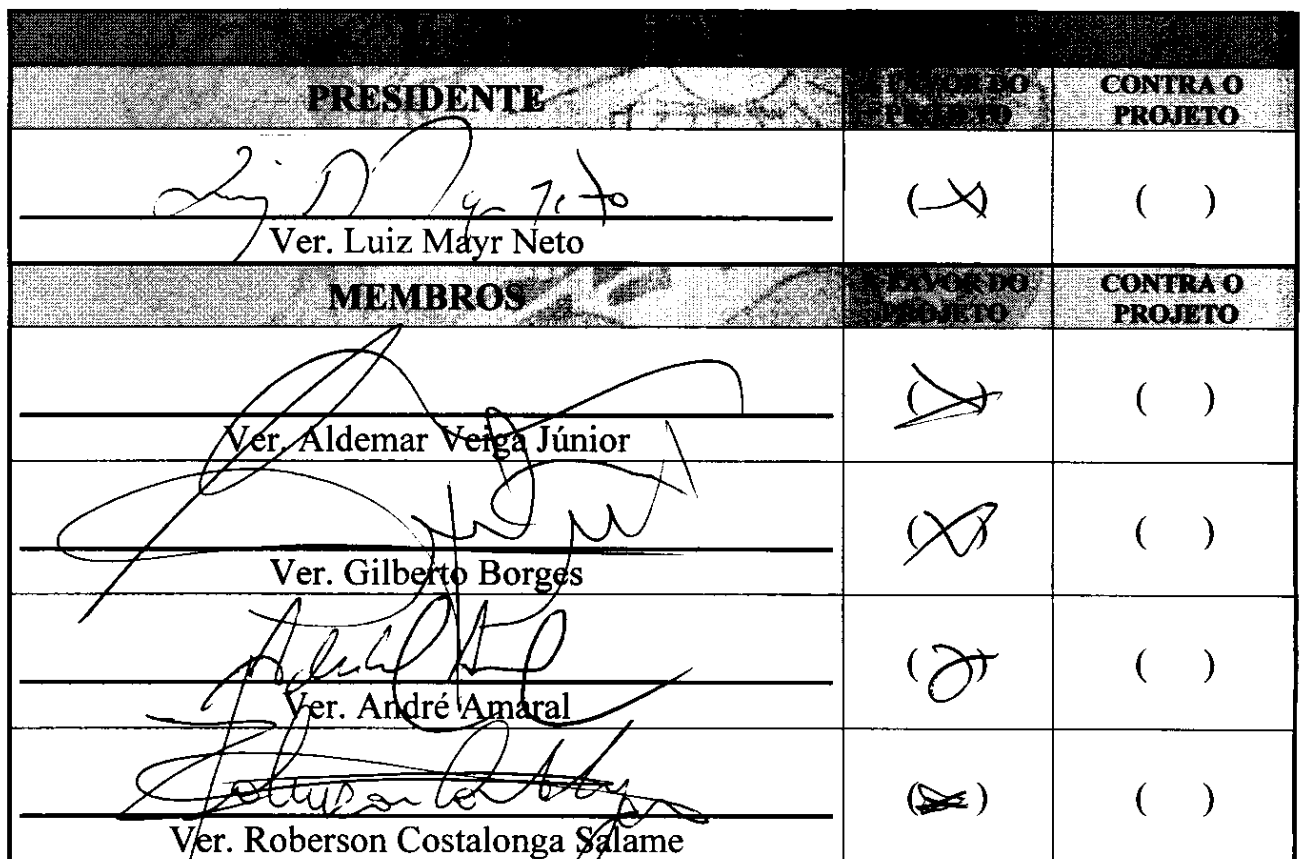 PRESIDENTE A FAVOR DO CONTRA O
PROJETO PROJETO
( X ) ( )
Ver. Luiz Mayr Neto
MEMBROS A FAVOR DO CONTRA O
PROJETO PROJETO
( X ) ( )
Ver. Aldemar Veiga Júnior
( X ) ( )
Ver. Gilberto Borges
( ) ( )
Ver. André Amaral
( X ) ( )
Ver. Roberson Costalonga Salame